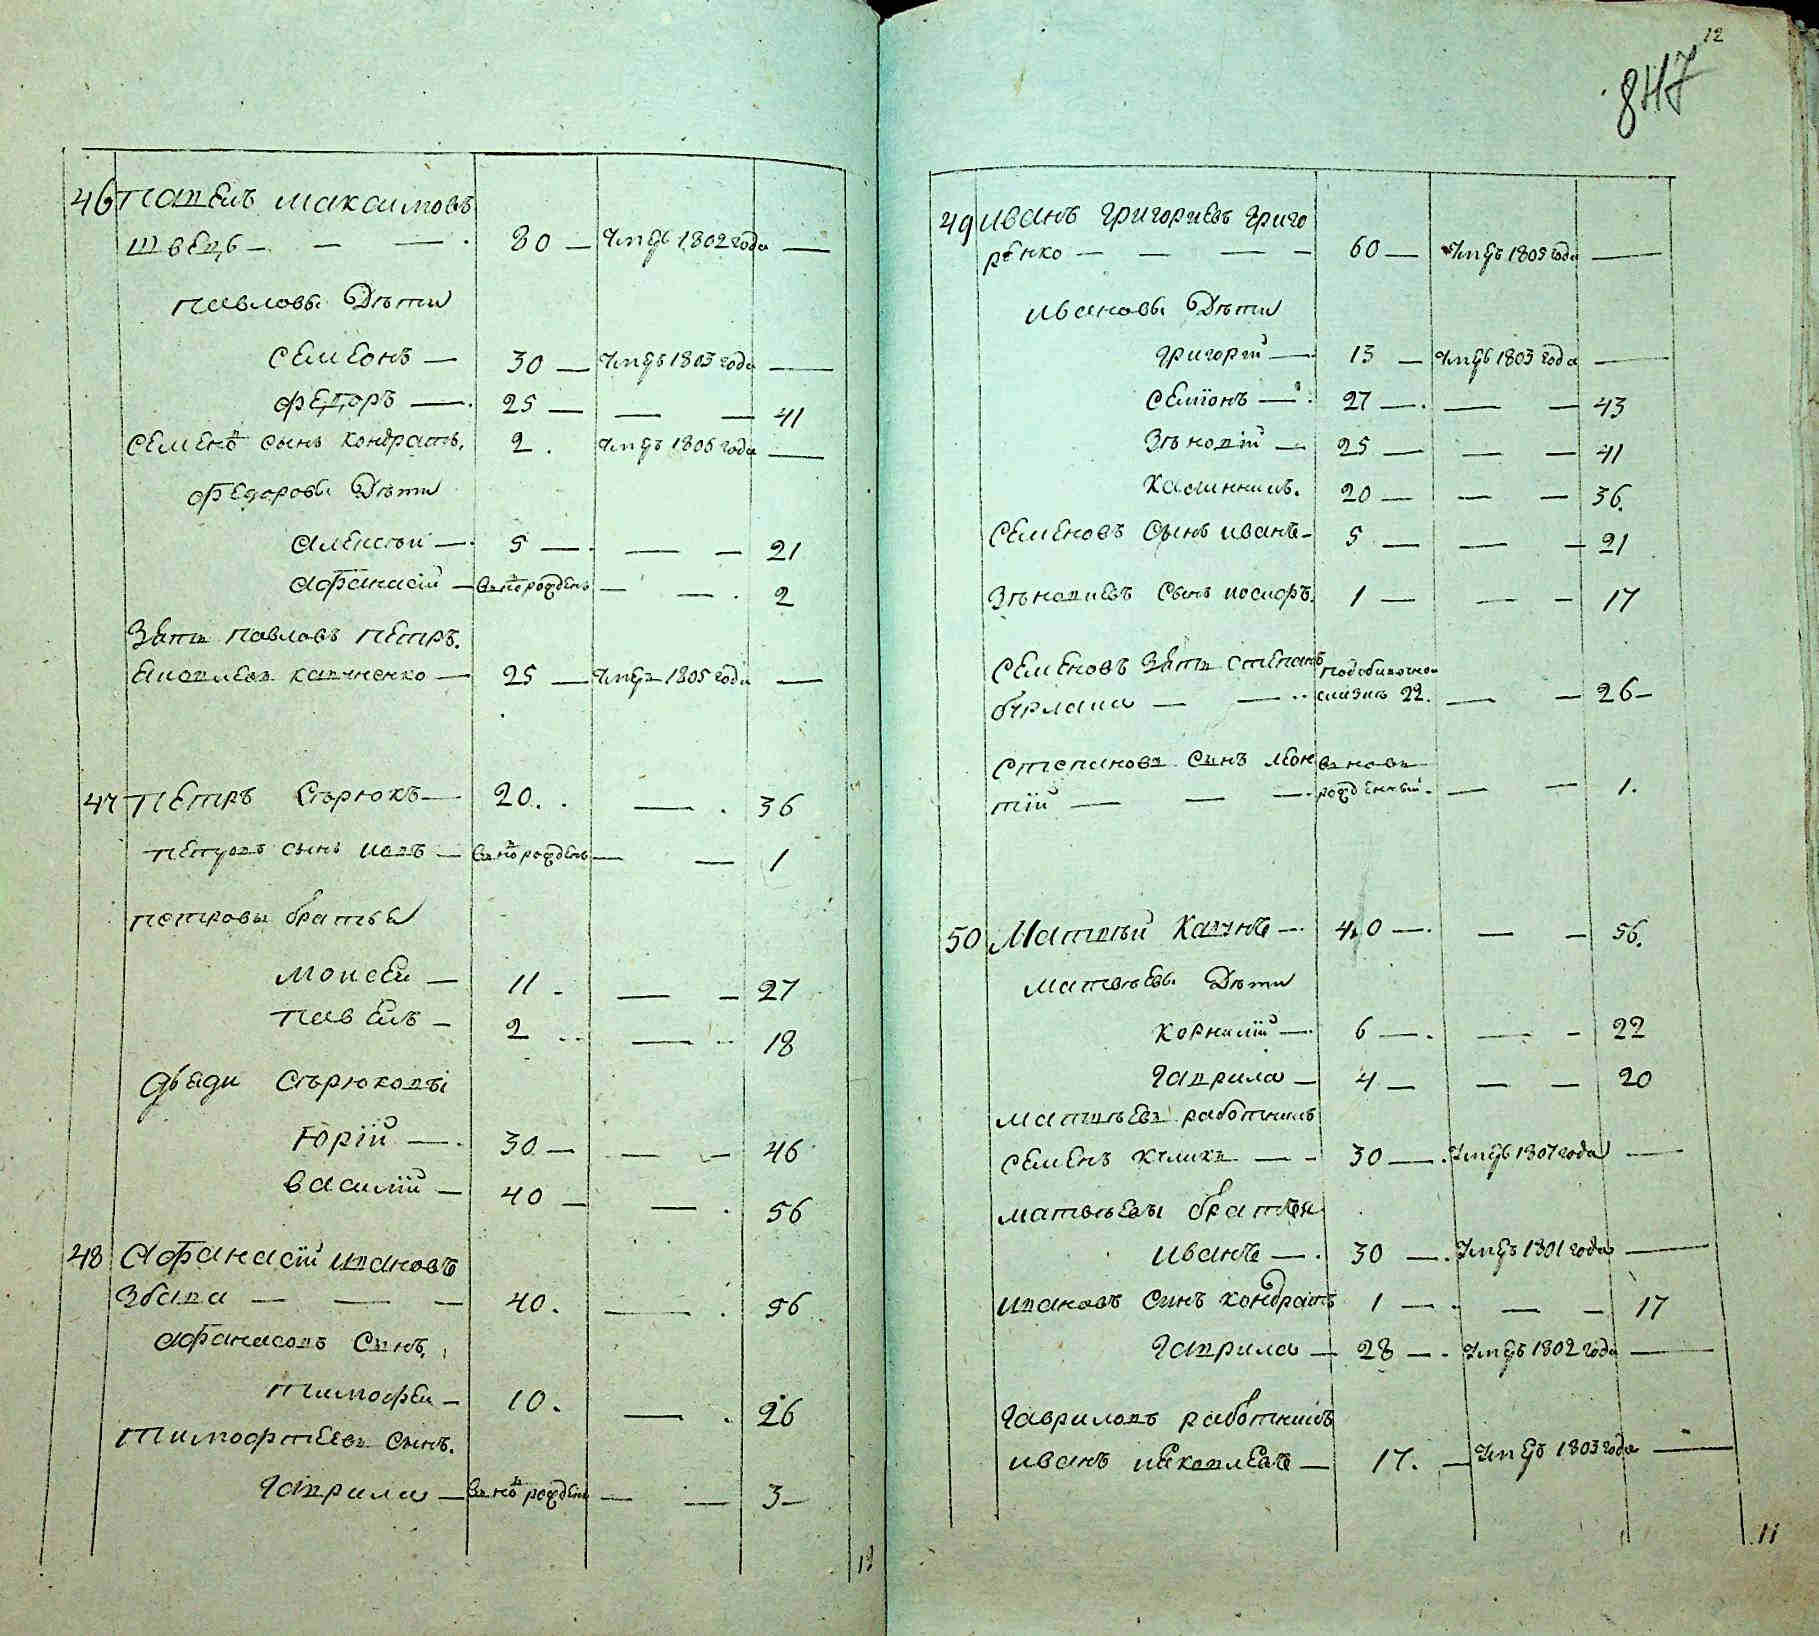 46 Павелъ Макаимовъ
Швецъ — — — 80 — Умеръ 1802 года —
Павловы Дѣти
Семеонъ — 30 — Умеръ 1803 года —
Федоръ — 25 — — — 41
Семеновъ сынъ Кондратъ. 2. Умеръ 1806 года —
Федоровы Дѣти
Алексѣй — 5 — — — 21
Афанасій — вновь рожденъ — — 2
Зять Павловъ Петръ.
25 — Умеръ 1805 года —
47 Петръ Сѣрюкъ — 20. — 36
Петровъ сынъ Іовъ — вновь рожденъ — — 1
Петровы братья
Моисей — 11 — — 27
Павелъ — 2 — 18
Дяди Сѣрюковы
Юрій — 30 — — — 46
Василій — 40 — — 56
48 Афанасій Ивановъ
Збава — — — 40. — 56
Афанасовъ Синъ.
Тимофей — 10. — 26
Тимофтеевъ Сынъ.
Гаврила — вновь рожденъ — — 3 —
12
847
49 Иванъ Григориевъ Григо
ренко — — — — 60 — Умеръ 1809 года —
Ивановы Дѣти
Григорій — 13 — Умеръ 1803 года —
Семіонъ — 27 — — — 43
Зѣновій — 25 — — — 41
Калинникъ. 20 — — — 36.
Семеновъ Сынъ Иванъ — 5 — — — 21
Зѣновиевъ Сынъ Иосифъ. 1 — — — 17
Семеновъ Зять Степанъ
Бурлака — — 22. — — 26 —
Степановъ Синъ Леон вновь
тій — — — рожденный. — — 1.
50 Матвѣй Кавунъ — 40 — — — 56.
Матвѣевы Дѣти
Корнилій — 6 — — — 22
Гаврила — 4 — — — 20
Матвѣевъ работникъ
Семенъ Куликъ — — 30 — Умеръ 1807 года —
Матвѣевы братья
Иванъ — 30 — Умеръ 1801 года —
Ивановъ Синъ Кондратъ 1 — — — 17
Гаврила — 28 — Умеръ 1802 года —
Гавриловъ работникъ
Иванъ Яковлевъ — 17. — Умеръ 1803 года —
11